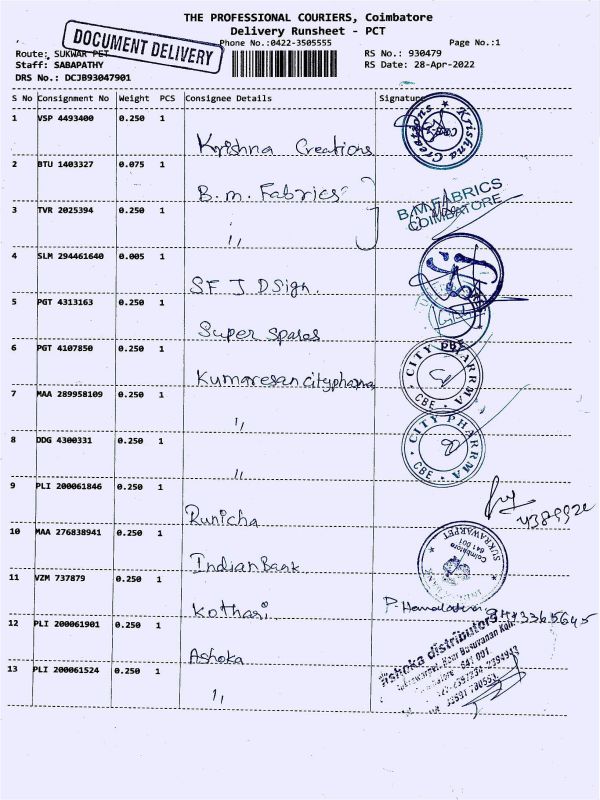 THE PROFESSIONAL COURIERS, Coimbatore
Delivery Runsheet - PCT
DOCUMENT DELIVERY
Phone No.:0422-3505555 Page No.:1
Route: SUKWAR PET RS No.: 930479
Staff: SABAPATHY RS Date: 28-Apr-2022
DRS No.: DCJB93047901
S No Consignment No Weight PCS Consignee Details Signature
1 VSP 4493400 0.250 1
Krishna Creations
Krishna Creations
2 BTU 1403327 0.075 1
B.m. Fabrics
B.M.FABRICS
COIMBATORE
3 TVR 2025394 0.250 1
",
4 SLM 294461640 0.005 1
SF J DSign.
5 PGT 4313163 0.250 1
Super Spares
6 PGT 4107850 0.250 1
Kumaresan cityphama
CITY PHARRMA CBE
7 MAA 289958109 0.250 1
",
8 DDG 4300331 0.250 1
",
CITY PHARRMA CBE
9 PLI 200061846 0.250 1
Runicha
10 MAA 276838941 0.250 1
Indian Bank
SUKRAWARPET
Coimbatore
641 001
11 VZM 737879 0.250 1
Kothari
12 PLI 200061901 0.250 1
Ashoka
Ashoka distributors
641 001
13 PLI 200061524 0.250 1
",